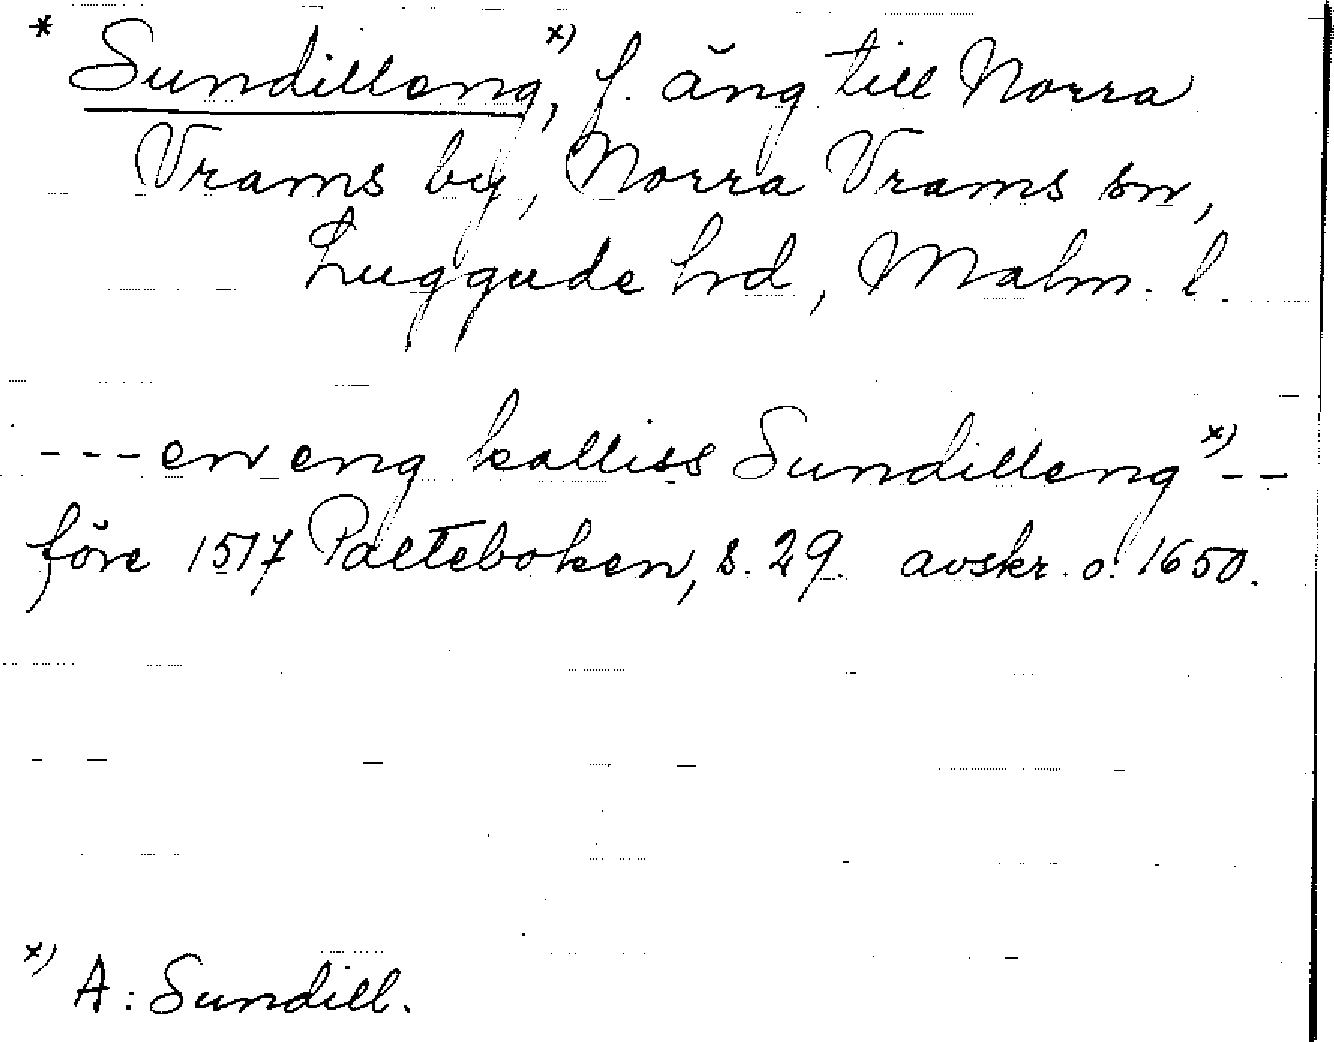 * Sundilleng,ˣ⁾ f. äng till Norra
Vrams by, Norra Vrams sn,
Luggude hd, Malm. l.
---en eng kalliss Sundillengˣ⁾--
före 1517 Palteboken, s. 29. avskr. o. 1650.
ˣ⁾ A: Sundill.